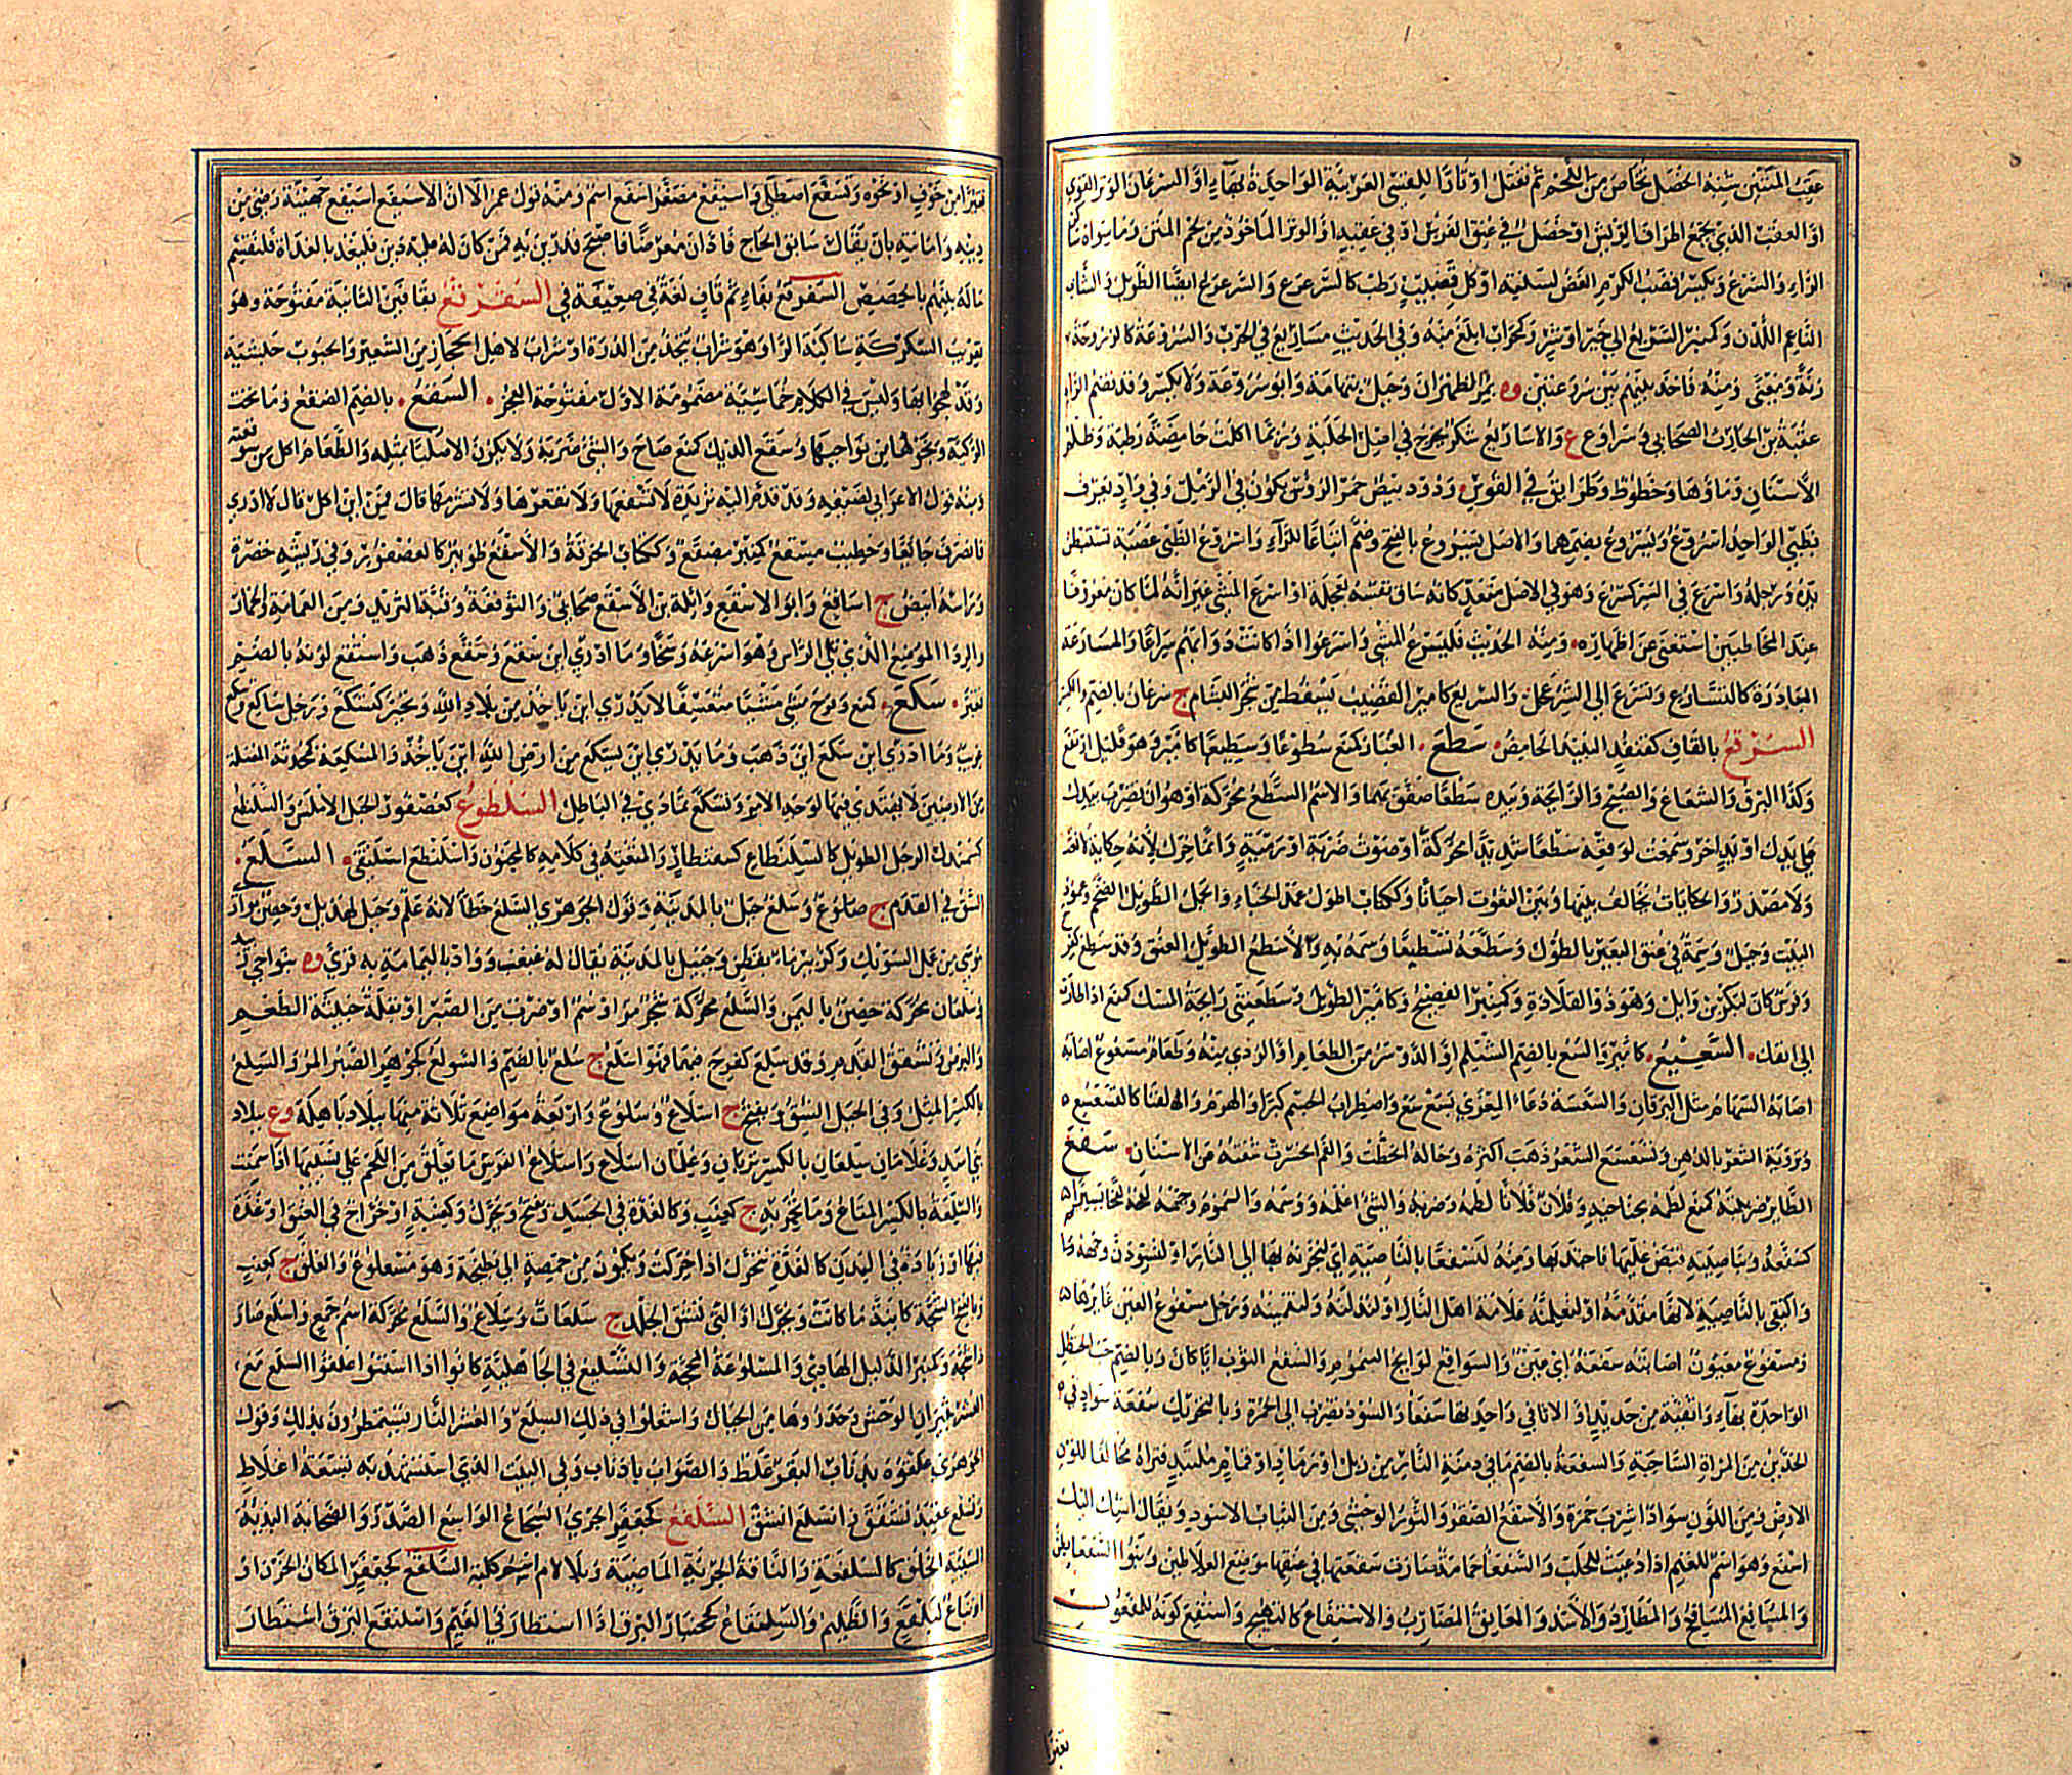 عقب المتنين شبه الخصل تخلص من اللحم ثم تفتل اوتارا للقسي العربية الواحدة بهاء او السرعان الوتر القوي
او العقب الذي يجمع اطراف الريش او خصل في عنق الفرس او في عقبه او الوتر الماخوذ من لحم المتن وما سواه ساكن
الراء والسرع ويكسر قضيب الكرم الغض لسنته او كل قضيب رطب كالسرعرع والسرعرع ايضا الطويل والشاب
الناعم اللدن وكمنبر السريع الى خير او شر وكمحراب ابلغ منه وفي الحديث مساريع في الحرب والسروعة كالزروحة
زنة ومعنى ومنه فاخذ بهم بين سروعتين وه بمر الظهران وجبل بتهامة وابو سروعة ولا يكسر وقد تضم الراء
عقبة بن الحارث الصحابي وسراوع ع والاساريع شكر تخرج في اصل الحبلة وربما اكلت حامضة رطبة وظلم
الاسنان وماؤها وخطوط وطرائق في القوس ودود بيض حمر الرؤس يكون في الرمل وفي واد يعرف
بظبي الواحد اسروع ويسروع بضمهما والاصل يسروع بالفتح وضم اتباعا للراء واسروع الظبي عصبة تستبطن
يده ورجله واسرع في السير كسرع وهو في الاصل متعد كانه ساق نفسه بعجلة او اسرع المشي غير انه لما كان معروفا
عند المخاطبين استغنى عن اظهاره ومنه الحديث فليسرع المشي واسرعوا اذا كانت دوابهم سراعا والمسارعة
المبادرة كالتسارع وتسرع الى الشر عجل والسريع كامير القضيب يسقط من شجر البشام ج سرعان بالضم والكسر
السرقع بالقاف كقنفذ النبيذ الحامض سطع الغبار كمنع سطوعا وسطيعا كامير وهو قليل ارتفع
وكذا البرق والشعاع والصبح والرائحة وبيده سطعا صفق بهما والاسم السطع محركة او هو ان تضرب بيدك
على يدك او يد اخر وسمعت لوقعه سطعا شديدا محركة اي صوت ضربة او رمية وانما حرك لانه حكاية لا نعت
ولا مصدر والحكايات يخالف بينها وبين النعوت احيانا وككتاب اطول عمد الخباء والجمل الطويل الضخم وعمود
البيت وجبل وسمة في عنق البعير بالطول وسطعه تسطيعا وسمه به والاسطع الطويل العنق وقد سطع كفرح
وفرس كان لبكر بن وائل وهو ذو القلادة وكمنبر الفصيح وكامير الطويل وسطعتني رائحة المسك كمنع اذا طارت
الى انفك السعيع كامير والسع بالضم الشيلم او الدوسر من الطعام او الردي منه وطعام مسعوع اصابه
اصابه السهام مثل اليرقان والسعسعة دعاء المعزي بسع سع واضطراب الجسم كبرا والهرم والفنا كالتسعسع
وتروية الشعر بالدهن وتسعسع الشعر ذهب اكثره وحاله انحطت والفم انحسرت شفته عن الاسنان سفع
الطائر ضريبته كمنع لطمه بجناحيه وفلان فلانا لطمه وضربه والشئ اعلمه ووسمه والسموم وجهه لفحه لفحا يسيرا
كسفعه وبناصيته قبض عليها فاجتذبها ومنه لنسفعا بالناصية اي لنجرنه بها الى النار او لنسودن وجهه وانما
واكتفى بالناصية لانها مقدمة او لنعلمنه علامة اهل النار او لنذلنه ولنقمئنه ورجل مسفوع العين غائرها
ومسفوع معيون اصابته سفعة اي عين والسوافع لوافح السموم والسفع الثوب ايا كان وبالضم حب الحنظل
الواحدة بهاء واثفية من حديد او الاثافي واحدتها سفعاء والسود تضرب الى الحمرة وبالتحريك سفعة سواد في
الخدين من المراة الشاحبة والسفعة بالضم ما في دمنة الدار من زبل او رماد او قمام متلبد فتراه مخالفا للون
الارض ومن اللون سوادا اشرب حمرة والاسفع الصقر والثور الوحشي ومن الثياب الاسود ويقال اشل اليك
اسفع وهو اسم للغنم اذا دعيت للحلب والسفعاء حمامة صارت سفعتها في عنقها موضع العلاطين وبنو السفعاء بطن
والمسافع المسافح والمطارد والاسد والمعانق المضارب والاستفاع كالتهبج واستفع لونه للمفعول
تغيرا
تغيرا من خوف او نحوه وتسفع اصطلى واسيفع مصغر اسفع اسم ومنه قول عمر الا ان الاسيفع اسيفع جهينة رضي من
دينه وامانته بان يقال سابق الحاج فادان معرضا فاصبح قد رين به فمن كان له عليه دين فليغد بالغداة فلنقسم
ماله بينهم بالحصص السفرقع بفاء ثم قاف لغة ضعيفة في السقرقع بقافين الثانية مفتوحة وهو
تعريب السكركة ساكنة الراء وهو شراب يتخذ من الذرة او شراب لاهل الحجاز من الشعير والحبوب حبشية
وقد لهجوا بها وليس في الكلام خماسية مضمومة الاول مفتوحة العجز السقع بالضم الصقع وما تحت
الركية وبحولها من نواحيها وسقع الديك كمنع صاح والشئ ضربه ولا يكون الا صلبا بمثله والطعام اكل من سوقعته
ومنه قول الاعرابي لضيفه وقد قدم اليه ثريدة لا تسقعها ولا تقعرها ولا تشرمها قال فمن اين اكل قال لا ادري
فانصرف جائعا وخطيب مسقع كمنبر مصقع وككتاب الخرقة والاسقع طويئر كالعصفور وفي ريشه خضرة
وراسه ابيض ج اساقع وابو الاسقع واثلة بن الاسقع صحابي والسوقعة وقبة الثريد ومن العمامة والخمار
والرداء الموضع الذي يلي الراس وهو اسرعه وسخا وما ادري اين سقع وسقع ذهب واستقع لونه بالضم
تغير سكع كمنع وفرح مشى مشيا متعسفا لا يدري اين ياخذ من بلاد الله وتحير كتسكع ورجل ساكع وسكع
غريب وما ادري اين سكع اين ذهب وما يدري اين يسكع من ارض الله اين ياخذ والمسكعة كمحدثة المضللة
من الارضين لا يهتدى فيها لوجه الامر وتسكع تمادى في الباطل السلطوع كعصفور الجبل الاملس والسلنطع
كسمندل الرجل الطويل كالسلنطاع كسقنطار والمتعته في كلامه كالمجنون واسلنطع استلقى السلع
الشق في القدم ج سلوع وسلع جبل بالمدينة وقول الجوهري السلع خطأ لانه علم وجبل لهذيل وحصن بواد
موسى من عمل الشوبك وكزبير ماء بقطن وجبيل بالمدينة يقال له عثعث وواد باليمامة به قرى وه بنواحي زبيد
وسلعان محركة حصن باليمن والسلع محركة شجر مر او سم او ضرب من الصبر او بقلة خبيثة الطعم
والبرص وتشقق القدم وقد سلع كفرح فيهما فهو اسلع ج سلع بالضم والسولع كجوهر الصبر المر والسلع
بالكسر المثل وفي الجبل الشق ويفتح ج اسلاع وسلوع واربعة مواضع ثلاثة منها ببلاد باهلة وع ببلاد
بني اسد وغلامان سلعان بالكسر تربان وغلمان اسلاع واسلاع الفرس ما تعلق من اللحم على نسييها اذا سمنت
والسلعة بالكسر المتاع وما تجر به ج كعنب وكالغدة في الجسد ويفتح ويحرك وكعنبة او خراج في العنق او غدة
فيها او زيادة في البدن كالغدة تتحرك اذا حركت وتكون من حمصة الى بطيخة وهو مسلوع والعلق ج كعنب
وبالفتح الشجة كائنة ما كانت ويحرك او التي تشق الجلد ج سلعات وسلاع والسلع محركة اسم جمع واسلع صار ذا
ذا شجة وكمنبر الدليل الهادي والمسلوعة المحجة والتسليع في الجاهلية كانوا اذا اسنتوا علقوا السلع مع
العشر بثيران الوحش وحدروها من الجبال واشعلوا في ذلك السلع والعشر النار يستمطرون بذلك وقول
الجوهري علقوه بذناب البقر غلط والصواب باذناب وفي البيت الذي استشهد به تسعة اغلاط
وتسلع عقبه تشقق وانسلع انشق السلفع كجعفر الجرئ الشجاع الواسع الصدر والصخابة البذيئة
السيئة الخلق كالسلفعة والناقة الجريئة الماضية وبلا لام اسم كلبة السلقع كجعفر المكان الحزن او
اتباع لبلقع والظليم والسلنقاع كجحنبار البرق اذا استطار في الغيم واسلنقع البرق استطار